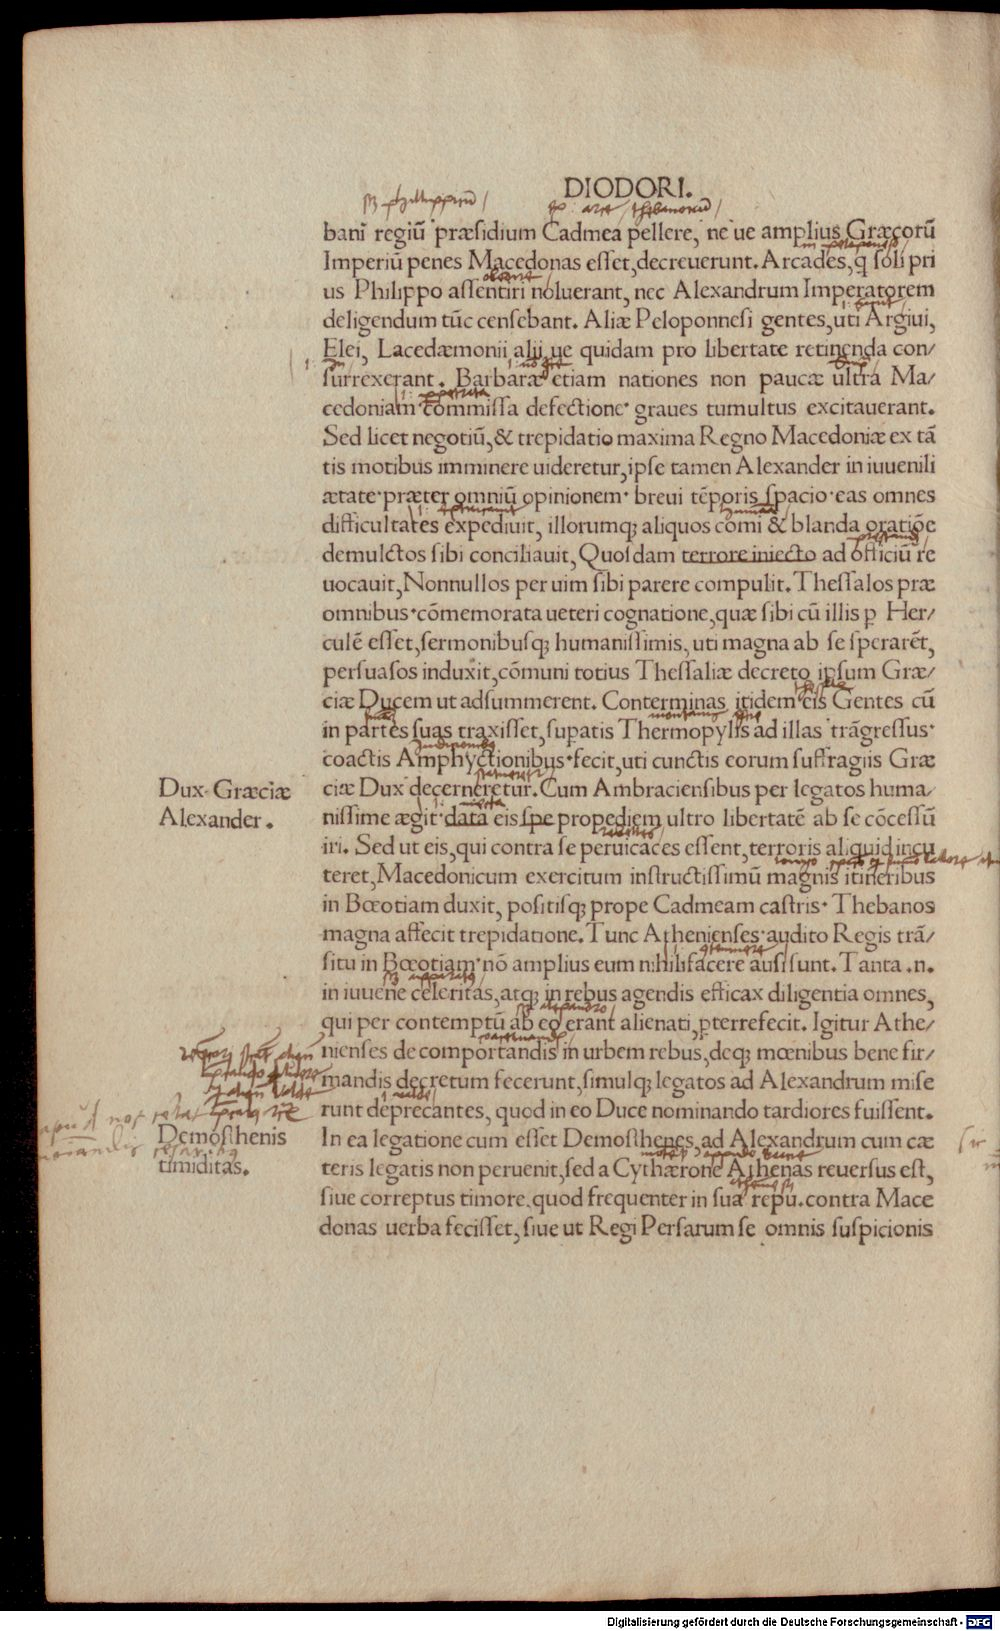 DIODORI.
bani regiū præsidium Cadmea pellere, ne ue amplius Græcorū
Imperiū penes Macedonas esset, decreuerunt. Arcades, q̄ soli pri
us Philippo assentiri noluerant, nec Alexandrum Imperatorem
deligendum tūc censebant. Aliæ Peloponnesi gentes, uti Argiui,
Elei, Lacedæmonii alii ue quidam pro libertate retinenda con/
surrexerant. Barbaræ etiam nationes non paucæ ultra Ma/
cedoniam commissa defectione graues tumultus excitauerant.
Sed licet negotiū, & trepidatio maxima Regno Macedoniæ ex tā
tis motibus imminere uideretur, ipse tamen Alexander in iuuenili
ætate præter omniū opinionem breui tēporis spacio eas omnes
difficultates expediuit, illorumq; aliquos comi & blanda oratiōe
demulctos sibi conciliauit, Quosdam terrore iniecto ad officiū re
uocauit, Nonnullos per uim sibi parere compulit. Thessalos præ
omnibus cōmemorata ueteri cognatione, quæ sibi cū illis ꝑ Her/
culē esset, sermonibusq; humanissimis, uti magna ab se sperarēt,
persuasos induxit, cōmuni totius Thessaliæ decreto ipsum Græ/
ciæ Ducem ut adsummerent. Conterminas itidem eis Gentes cū
in partes suas traxisset, supatis Thermopylis ad illas trāgressus
coactis Amphyctionibus fecit, uti cunctis eorum suffragiis Græ
ciæ Dux decerneretur. Cum Ambraciensibus per legatos huma/
nissime ægit data eis spe propediem ultro libertatē ab se cōcessū
iri. Sed ut eis, qui contra se peruicaces essent, terroris aliquid incu
teret, Macedonicum exercitum instructissimū magnis itineribus
in Bœotiam duxit, positisq; prope Cadmeam castris Thebanos
magna affecit trepidatione. Tunc Athenienses audito Regis trā/
situ in Bœotiam nō amplius eum nihili facere ausi sunt. Tanta .n.
in iuuene celeritas, atq; in rebus agendis efficax diligentia omnes,
qui per contemptū ab eo erant alienati, ꝑterrefecit. Igitur Athe/
nienses de comportandis in urbem rebus, deq; mœnibus bene fir/
mandis decretum fecerunt, simulq; legatos ad Alexandrum mise
runt deprecantes, quod in eo Duce nominando tardiores fuissent.
In ea legatione cum esset Demosthenes ad Alexandrum cum cæ
teris legatis non peruenit, sed a Cythærone Athenas reuersus est,
siue correptus timore, quod frequenter in sua repu. contra Mace
donas uerba fecisset, siue ut Regi Persarum se omnis suspicionis
Dux Græciæ
Alexander.
Demosthenis
timiditas.
Digitalisierung gefördert durch die Deutsche Forschungsgemeinschaft - DFG